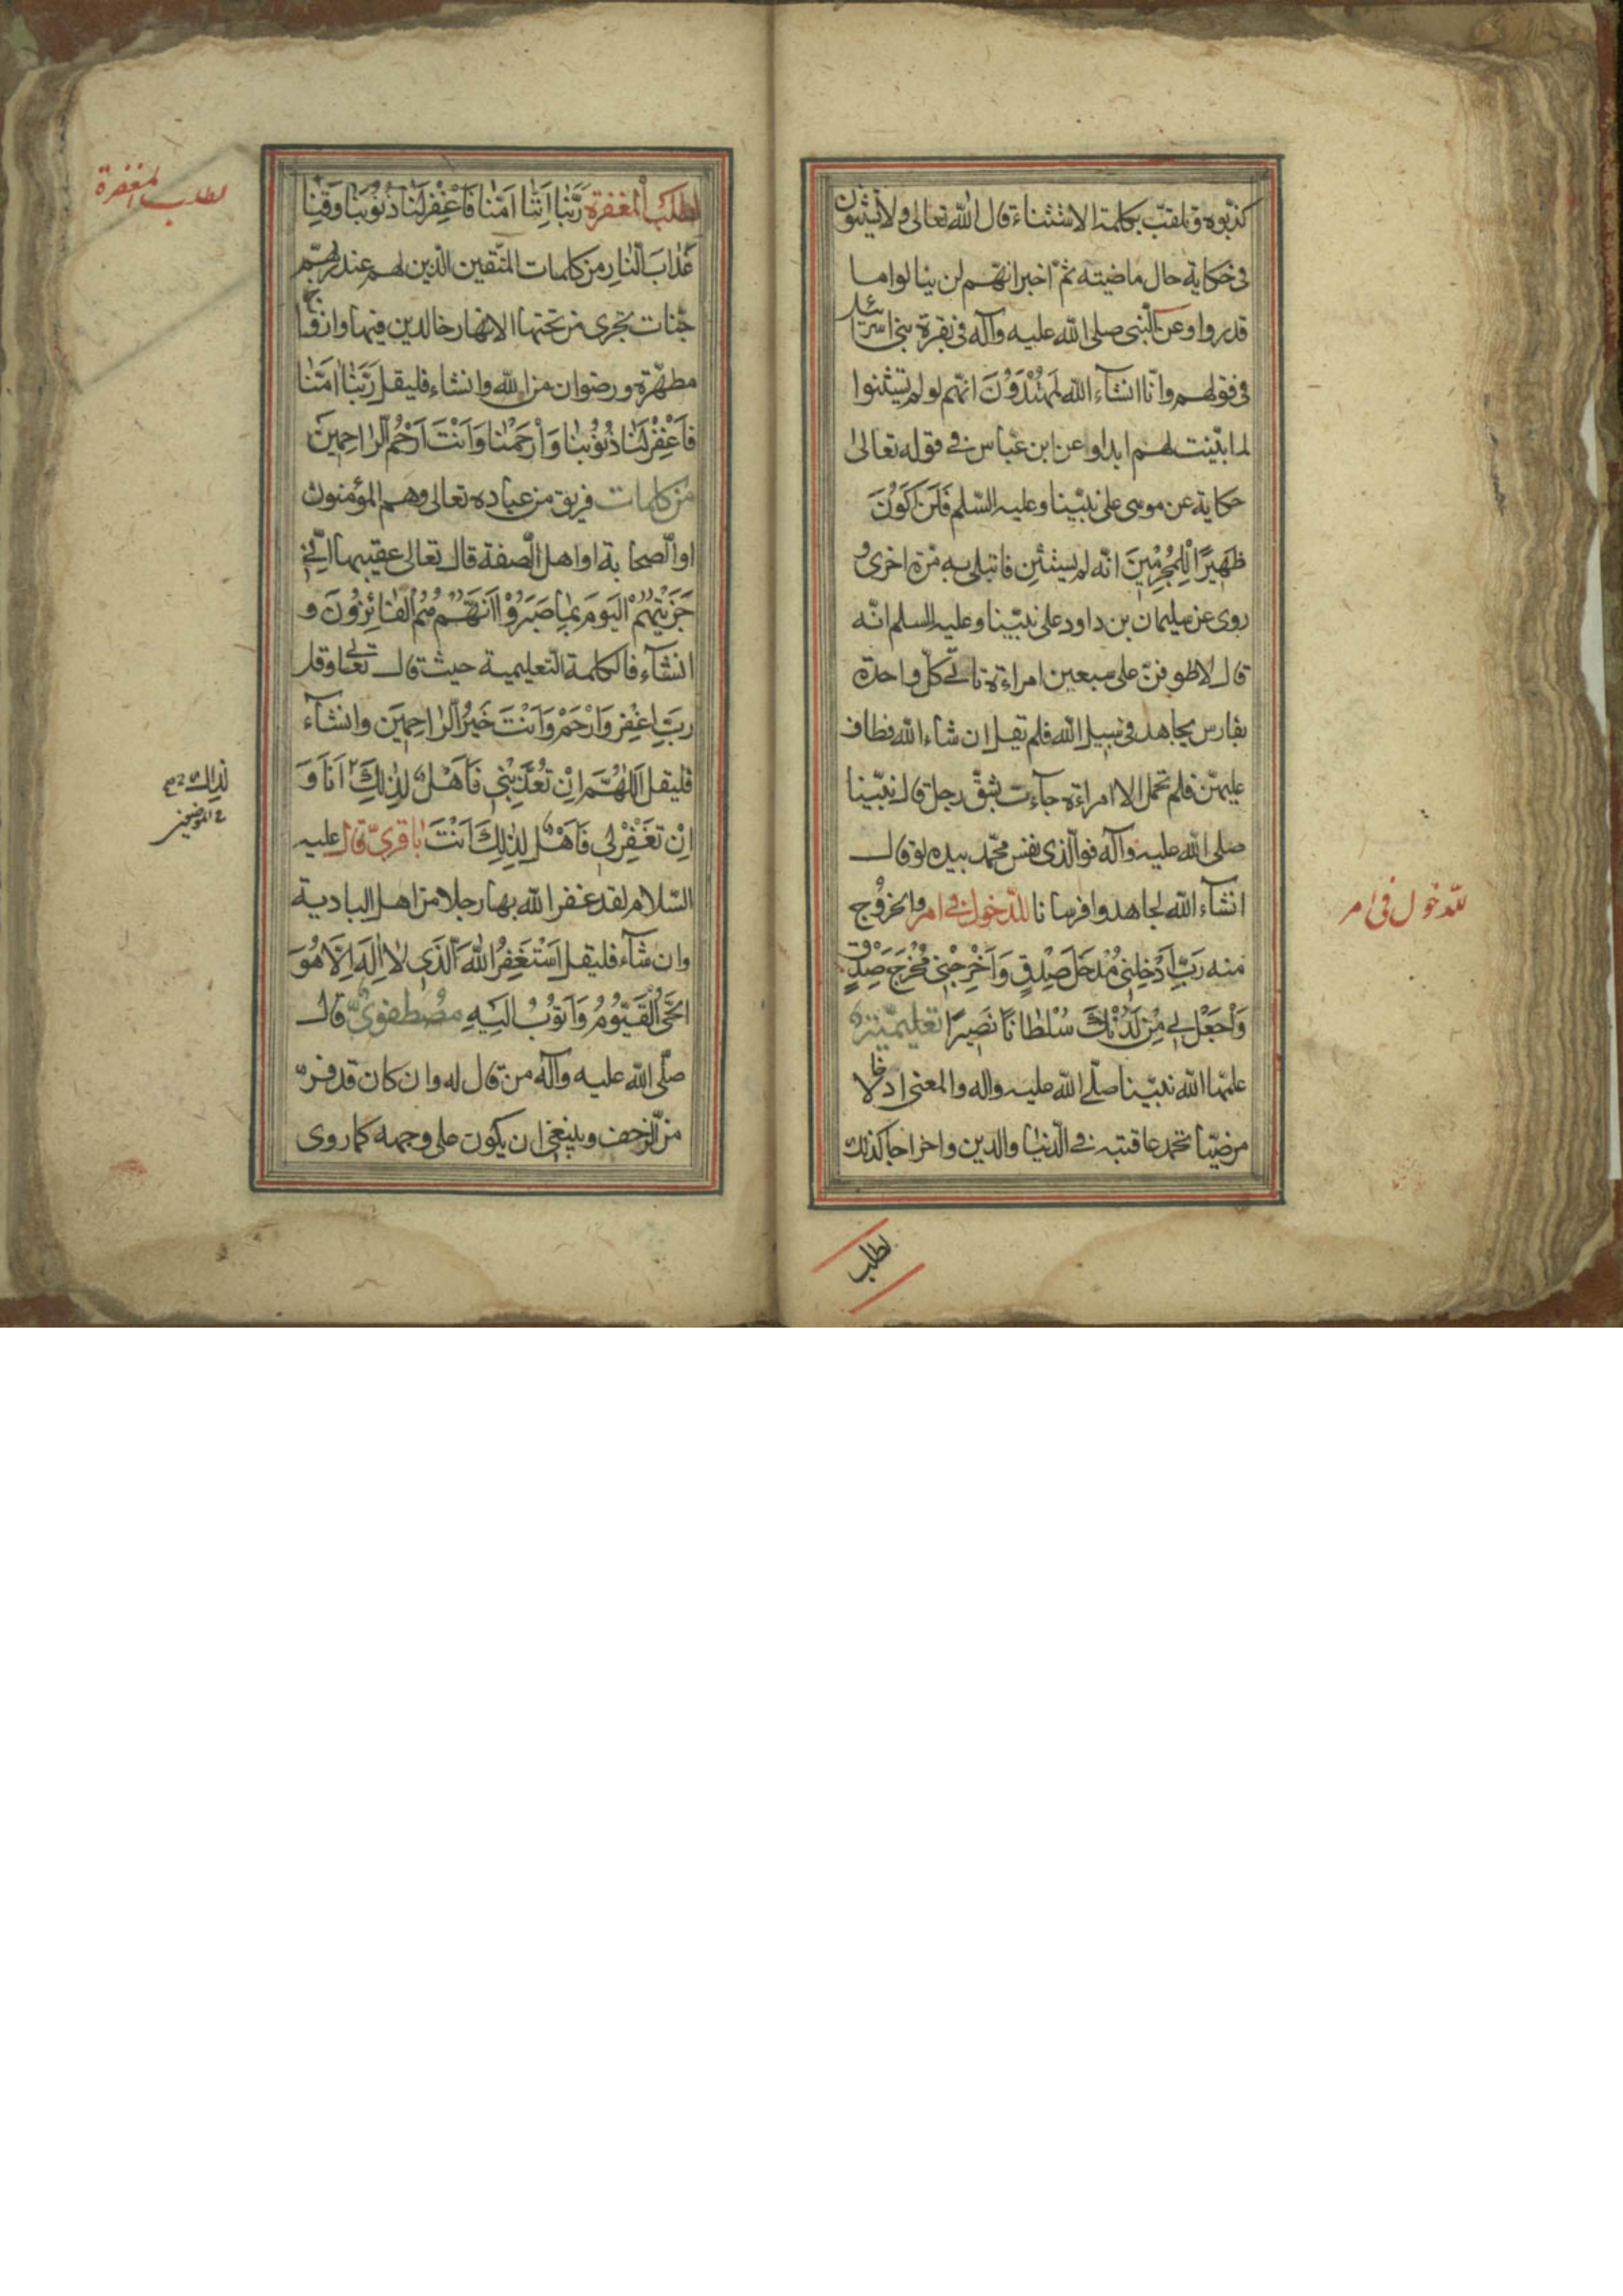 كذبوه وتلقب بكلمة الاستثناء قال الله تعالى ولا يستثنون
فى حكاية حال ماضيته ثم اخبر انهم لن ينالوا ما
قدروا وعن النبى صلى الله عليه وآله فى بقرة بنى اسرائيل
فى قولهم وانا انشآء الله لَمُهْتَدُوْنَ انهم لو لم يستثنوا
لما بينت لهم ابدا وعن ابن عباس فى قوله تعالى
حكاية عن موسى على نبينا وعليه السلم فَلَنْ اَكُوْنَ
ظَهِيرًا لِلْمُجْرِمِينَ انه لم يستثن فابتلى به مرة اخرى و
روى عن سليمان بن داود على نبينا وعليه السلم انه
قال لاطوفن على سبعين امراءة تاتى كل واحدة
بفارس يجاهد فى سبيل الله فلم يقل ان شاء الله فطاف
عليهن فلم تحمل الا امراءة جآءت بشق رجل قال نبينا
صلى الله عليه وآله فوالذى نفس محمد بيده لو قال
انشآء الله لجاهدوا فرسانا للدخول فى امر والخروج
منه رَبِّ اَدْخِلْنِى مُدْخَلَ صِدْقٍ وَاَخْرِجْنِى مُخْرَجَ صِدْقٍ
وَاجْعَلْ لِى مِنْ لَدُنْكَ سُلْطَانًا نَصِيرًا تعليمية
علمها الله نبينا صلى الله عليه واله والمعنى ادخالا
مرضيا تحمد عاقبته فى الدنيا والدين واخراجا كذلك
للدخول فى امر
لطلب
لطلب المغفرة رَبَّنَا اِنَّنَا اٰمَنَّا فَاغْفِرْ لَنَا ذُنُوْبَنَا وَقِنَا
عَذَابَ النَّارِ من كلمات المتقين الذين لهم عند ربهم
جنات تجرى من تحتها الانهار خالدين فيها وازواج
مطهرة ورضوان من الله وانشاء فليقل رَبَّنَا اٰمَنَّا
فَاغْفِرْ لَنَا ذُنُوْبَنَا وَارْحَمْنَا وَاَنْتَ اَرْحَمُ الرَّاحِمِينَ
من كلمات فريق من عباده تعالى وهم المؤمنون
او الصحابة او اهل الصفة قال تعالى عقيبها اِنِّى
جَزَيْتُهُمُ الْيَوْمَ بِمَا صَبَرُوْا اَنَّهُمْ هُمُ الْفَائِزُوْنَ و
انشآء فالكلمة التعليمية حيث قال تعالى وقل
رَبِّ اغْفِرْ وَارْحَمْ وَاَنْتَ خَيْرُ الرَّاحِمِينَ وانشآء
فليقل اَللّٰهُمَّ اِنْ تُعَذِّبْنِى فَاَهْلٌ لِذٰلِكَ اَنَا وَ
اِنْ تَغْفِرْ لِى فَاَهْلٌ لِذٰلِكَ اَنْتَ باقرىّ قال عليه
السلام لقد غفر الله بها رجلا من اهل البادية
وان شآء فليقل اَسْتَغْفِرُ اللهَ الَّذِى لَا اِلٰهَ اِلَّا هُوَ
الْحَىُّ الْقَيُّوْمُ وَاَتُوْبُ اِلَيْهِ مصطفوىّ قال
صلى الله عليه وآله من قال له وان كان قد فر
من الزحف وينبغى ان يكون على وجهه كما روى
لطلب المغفرة